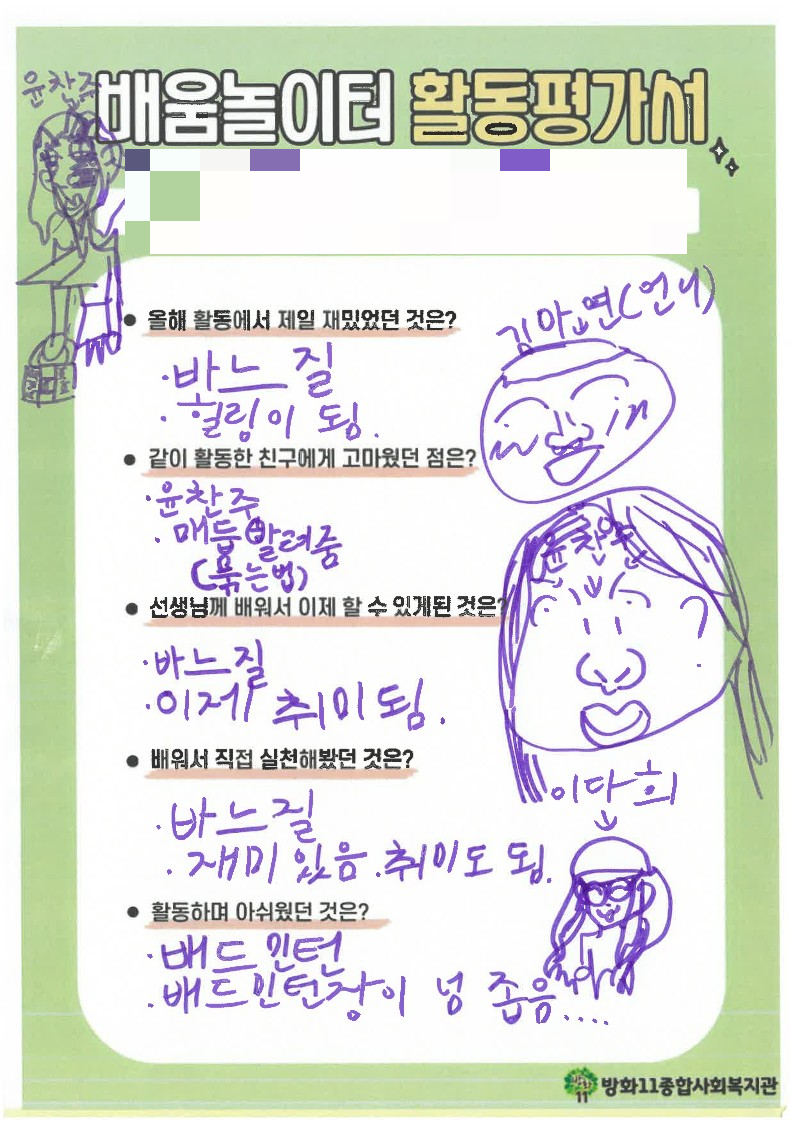 윤찬주
배움놀이터 활동평가서
올해 활동에서 제일 재밌었던 것은?
김아연(언니)
·바느질
·힐링이 됨.
같이 활동한 친구에게 고마웠던 점은?
·윤찬주
·매듭 알려줌
(묶는법)
윤찬주
선생님께 배워서 이제 할 수 있게된 것은?
·바느질
·이제 취미 됨.
배워서 직접 실천해봤던 것은?
이다희
·바느질
·재미 있음.취미도 됨.
활동하며 아쉬웠던 것은?
·배드민턴
·배드민턴장이 넝 좁음....
방화11종합사회복지관